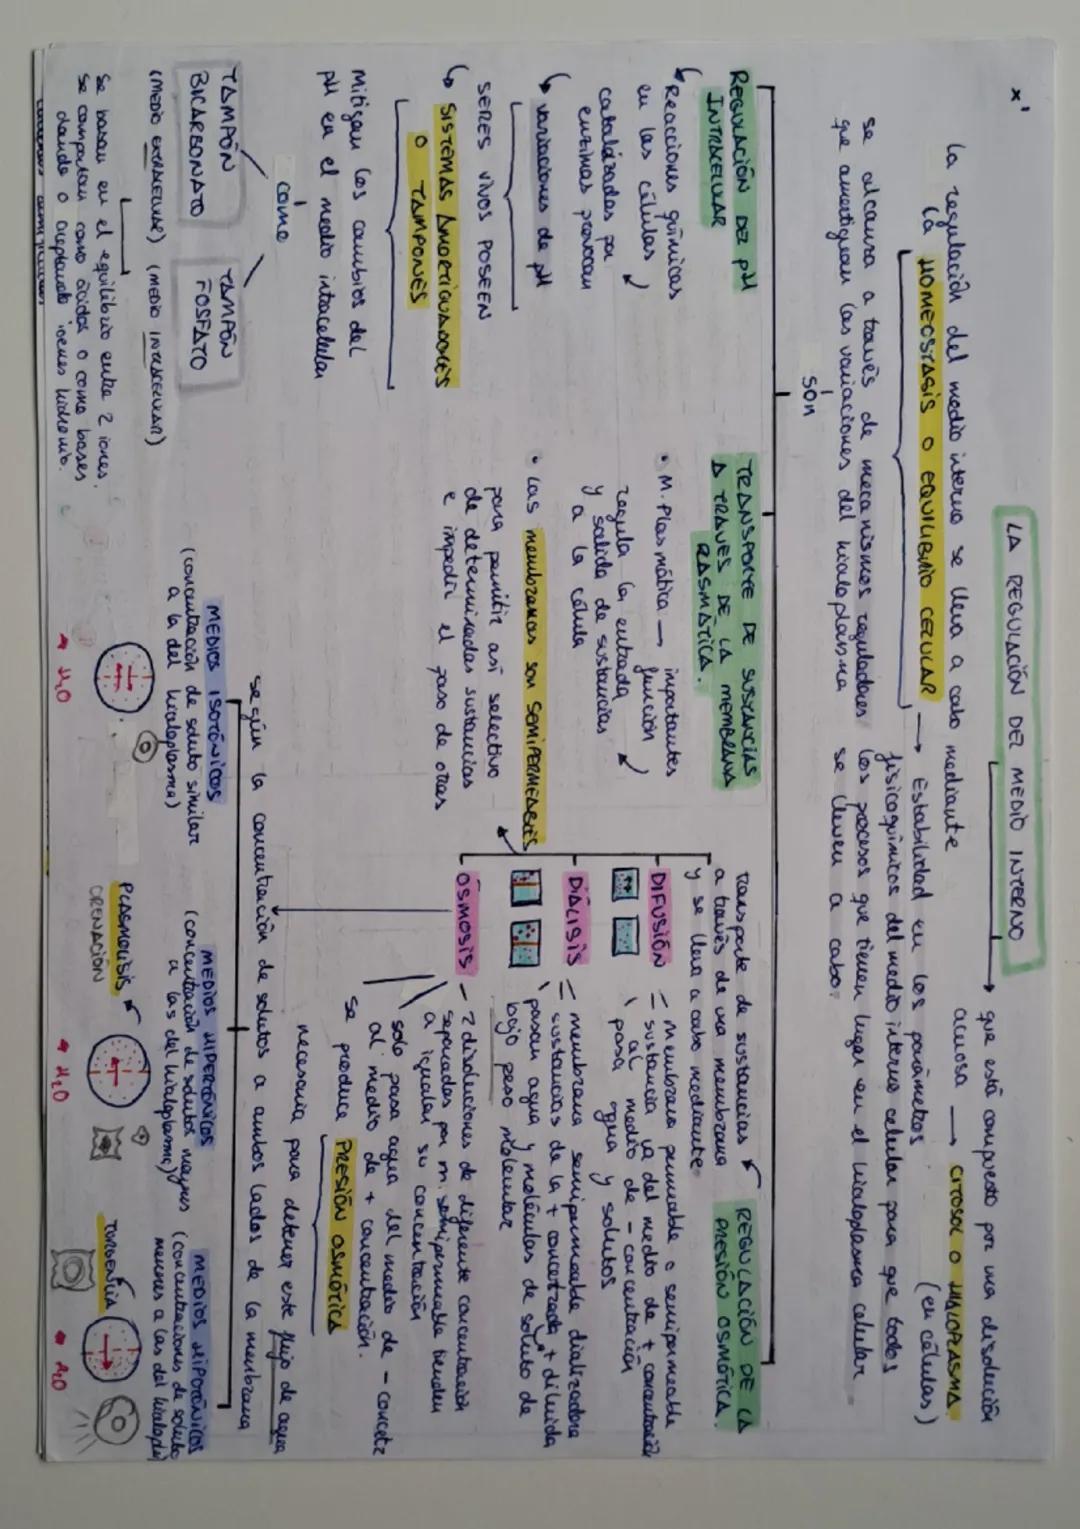 x'
LA REGULACIÓN DEL MEDIO INTERNO
que está compuesto por una disolución
acuosa → CITOSOL O HIALOPLASMA
(en células)
La regulación del medio interno se lleva a cabo mediante
la HOMEOSTASIS O EQUILIBRIO CELULAR → Estabilidad en los parámetros
fisicoquímicos del medio interno celular para que todos
los procesos que tienen lugar en el hialoplasma celular
se lleven a cabo.
se alcanza a través de mecanismos reguladores
que amortiguan las variaciones del hialoplasma
son
REGULACIÓN DEL pH
INTRACELULAR
Reacciones químicas
en las células
catalizadas por
enzimas provocan
variaciones de pH
SERES VIVOS POSEEN
SISTEMAS AMORTIGUADORES
O TAMPONES
Mitigan los cambios del
pH en el medio intracelular
como
TAMPÓN
BICARBONATO
(MEDIO EXTRACELULAR)
TAMPÓN
FOSFATO
(MEDIO INTRACELULAR)
Se basan en el equilibrio entre 2 iones.
Se comportan como ácidos o como bases
dando o aceptando iones hidronio.
TRANSPORTE DE SUSTANCIAS
A TRAVES DE LA MEMBRANA
PLASMÁTICA.
• M. Plasmática → importantes
función
regula la entrada
y salida de sustancias
a la célula
• Las membranas son SEMIPERMEABLES
para permitir así selectivo
de determinadas sustancias
e impedir el paso de otras
REGULACIÓN DE LA
PRESIÓN OSMÓTICA.
transporte de sustancias
a través de una membrana
y se lleva a cabo mediante
DIFUSIÓN
- membrana permeable o semipermeable
- sustancia va del medio de + concentración
al medio de - concentración
pasa agua y solutos
DIÁLISIS
- membrana semipermeable dializadora
- sustancias de la + concetrada a + diluida
pasan agua y moléculas de soluto de
bajo peso molecular
ÓSMOSIS
- 2 disoluciones de diferente concentración
separadas por m. semipermeable tienden
a igualar su concentración
solo pasa agua del medio de - concetr
al medio de + concentración.
se produce PRESIÓN OSMÓTICA
necesaria para detener este flujo de agua
según la concentración de solutos a ambos lados de la membrana
MEDIOS ISOTÓNICOS
(concentración de soluto similar
a la del hialoplasma)
H₂O
MEDIOS HIPERTÓNICOS
(concentración de solutos mayores
a las del hialoplasma)
PLASMOLISIS
CRENACIÓN
H₂O
MEDIOS HIPOTÓNICOS
(concentraciones de soluto
menores a las del hialopl)
TURGENCIA
H₂O